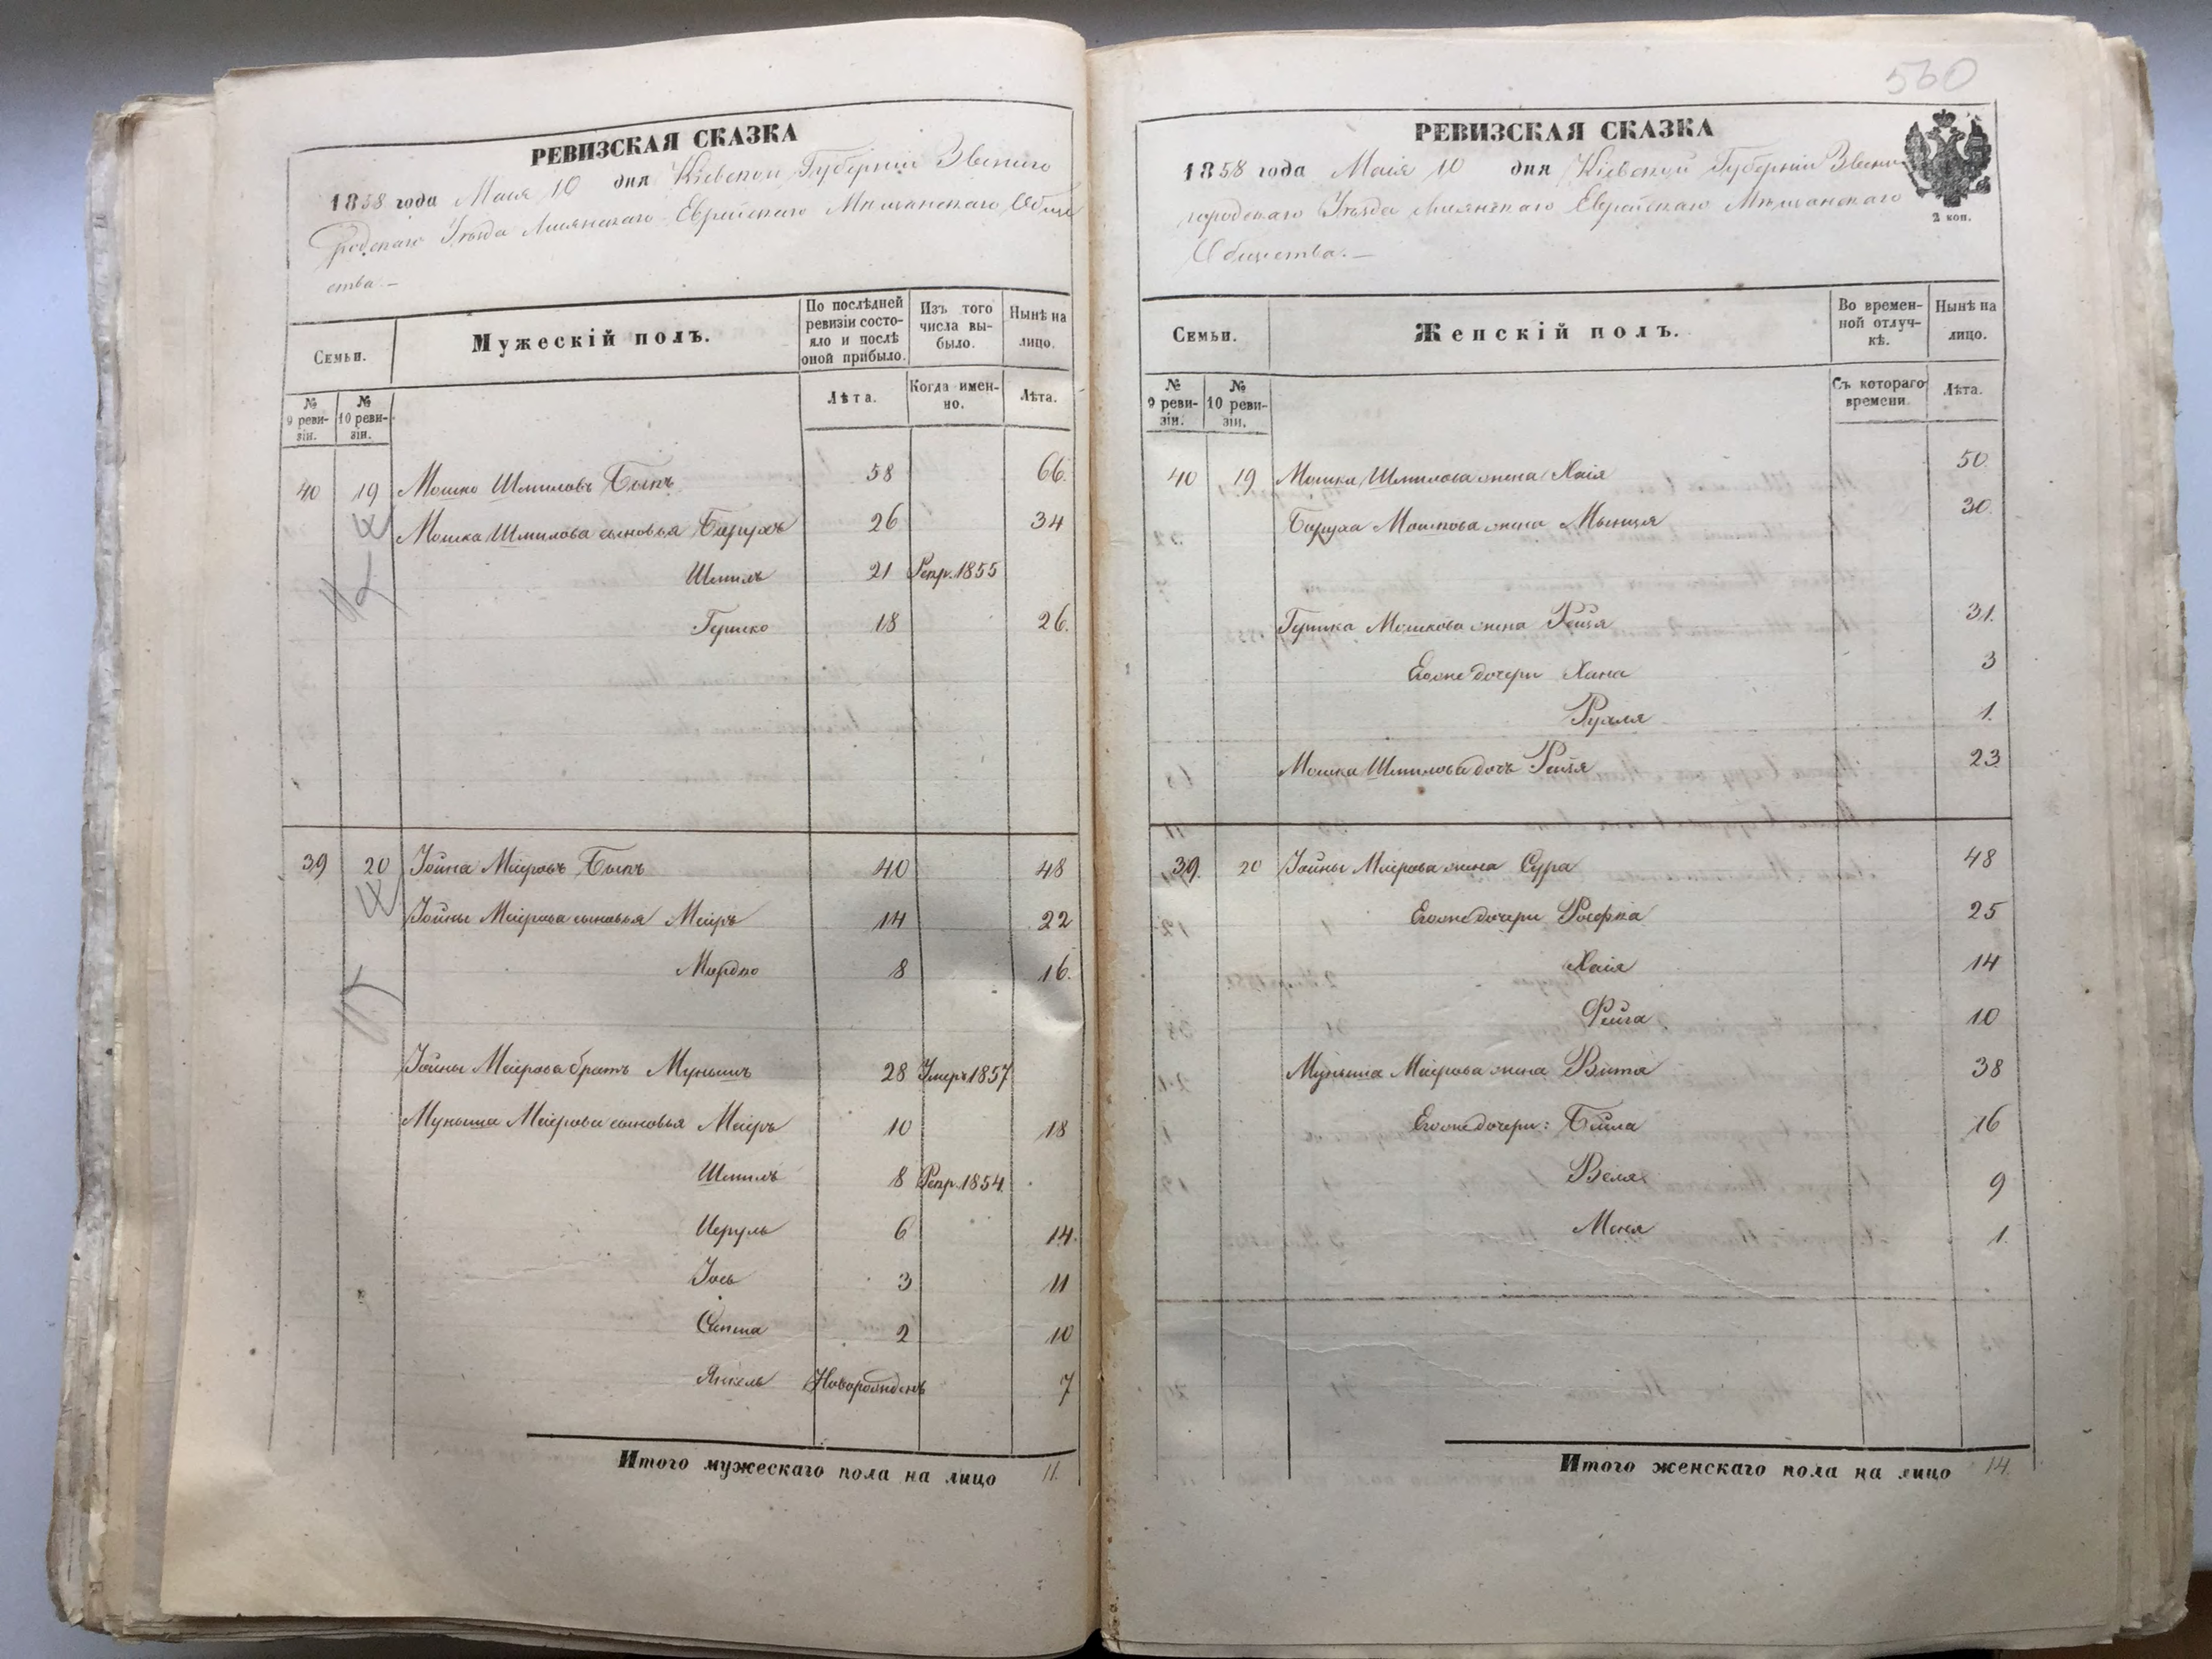 РЕВИЗСКАЯ СКАЗКА
1858 года Маія 10 дня Кіевской Губерніи Звениго
родскаго Уѣзда Лисянскаго Еврейскаго Мѣщанскаго Обще
ства.—
Семьи.
Мужескій полъ.
По послѣдней ревизіи состояло и послѣ оной прибыло.
Изъ того числа выбыло.
Нынѣ на лицо.
№ 9 ревизіи.
№ 10 ревизіи.
Лѣта.
Когда именно.
Лѣта.
40 19 Мошко Шмиловъ Быкъ 58 66.
Мошка Шмилова сыновья Барухъ 26 34
Шмиль 21 Рекр. 1855
Гершко 18 26.
39 20 Іойна Меіровъ Быкъ 40 48
Іойны Меірова сыновья Меіръ 14 22
Мордко 8 16.
Іойны Меірова братъ Мунышъ 28 Умеръ 1857
Муныша Меірова сыновья Меіръ 10 18
Шмиль 8 Рекр. 1854
Сруль 6 14.
Іось 3 11
2 10
Янкель Новорожденъ 7
Итого мужескаго пола на лицо 11.
560
РЕВИЗСКАЯ СКАЗКА
1858 года Маія 10 дня Кіевской Губерніи Звени
городскаго Уѣзда Лисянскаго Еврейскаго Мѣщанскаго
Общества.—
2 коп.
Семьи.
Женскій полъ.
Во временной отлучкѣ.
Нынѣ на лицо.
№ 9 ревизіи.
№ 10 ревизіи.
Съ котораго времени
Лѣта.
40 19 Мошка Шмилова жена Хаія 50
Баруха Мошкова жена 30.
Гершка Мошкова жена Рейзя 31.
Егоже дочери Хана 3
Рухля 1.
Мошка Шмилова дочь Рейзя 23
39. 20 Іойны Меірова жена Сура 48
Егоже дочери 25
Хаія 14
Фейга 10
Муныша Меірова жена 38
Егоже дочери: Бейла 16
Веля 9
Меня 1.
Итого женскаго пола на лицо 14.